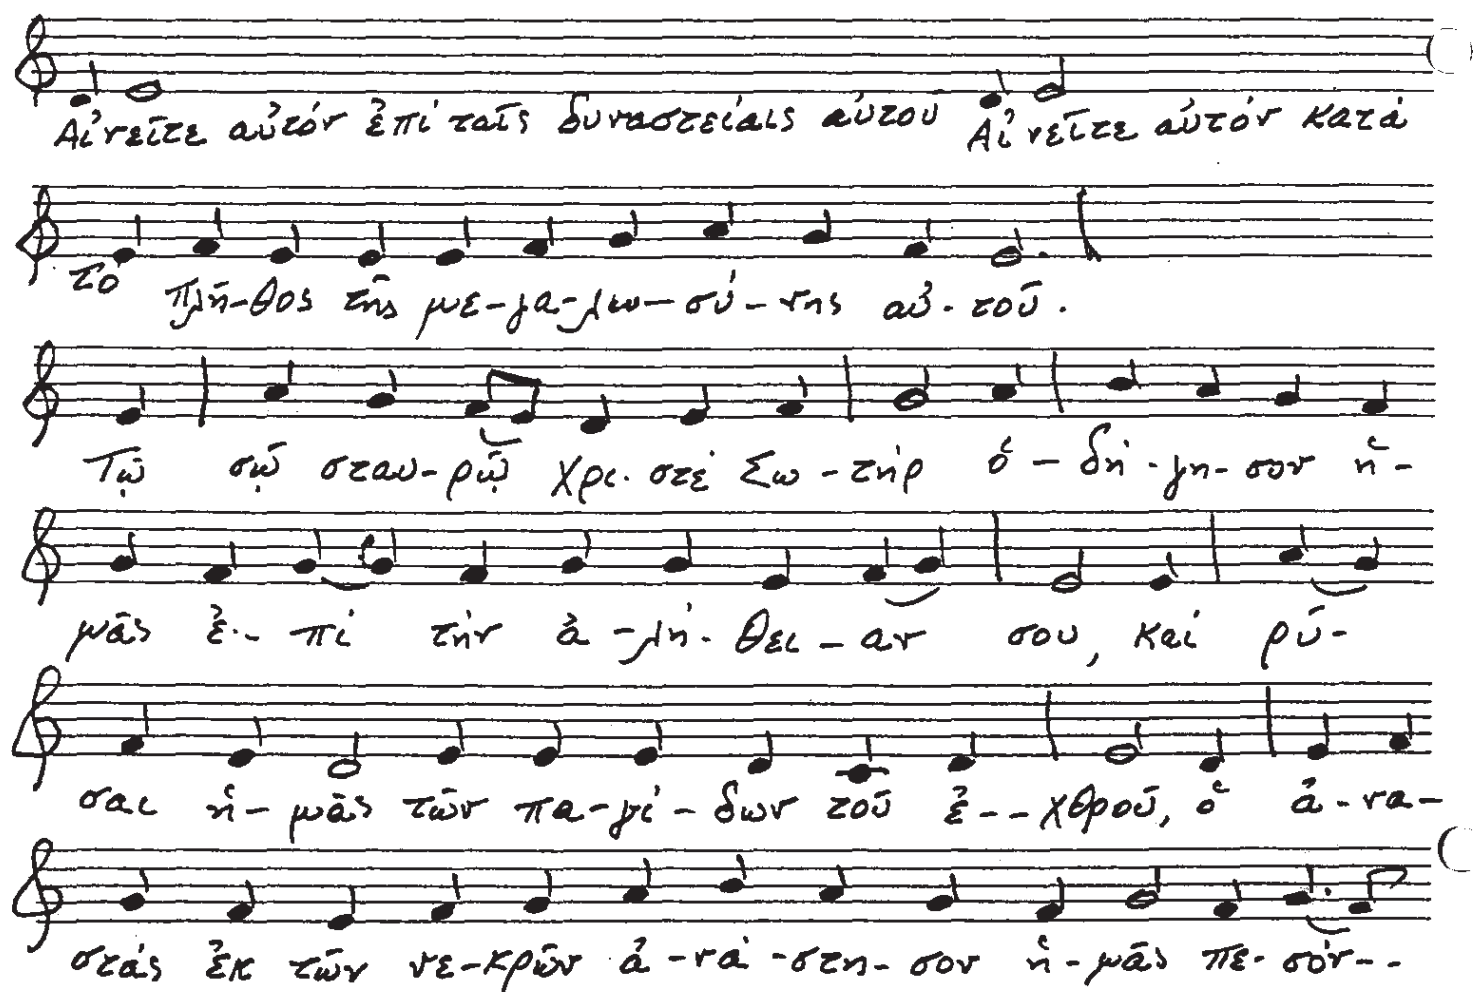 Αἰνεῖτε αὐτόν ἐπί ταῖς δυναστείαις αὐτοῦ Αἰνεῖτε αὐτόν κατά
το πλῆ-θος τῆς με-γα-λω-σύ-νης αὐ-τοῦ.
Τῷ σῷ σταυ-ρῷ Χρι-στέ Σω-τήρ ὁ-δή-γη-σον ἡ-
μᾶς ἐ-πί τήν ἀ-λή-θει-αν σου, καί ρῦ-
σαι ἡ-μᾶς τῶν πα-γί-δων τοῦ ἐ--χθροῦ, ὁ ἀ-να-
στάς ἐκ τῶν νε-κρῶν ἀ-νά-στη-σον ἡ-μᾶς πε-σόν--